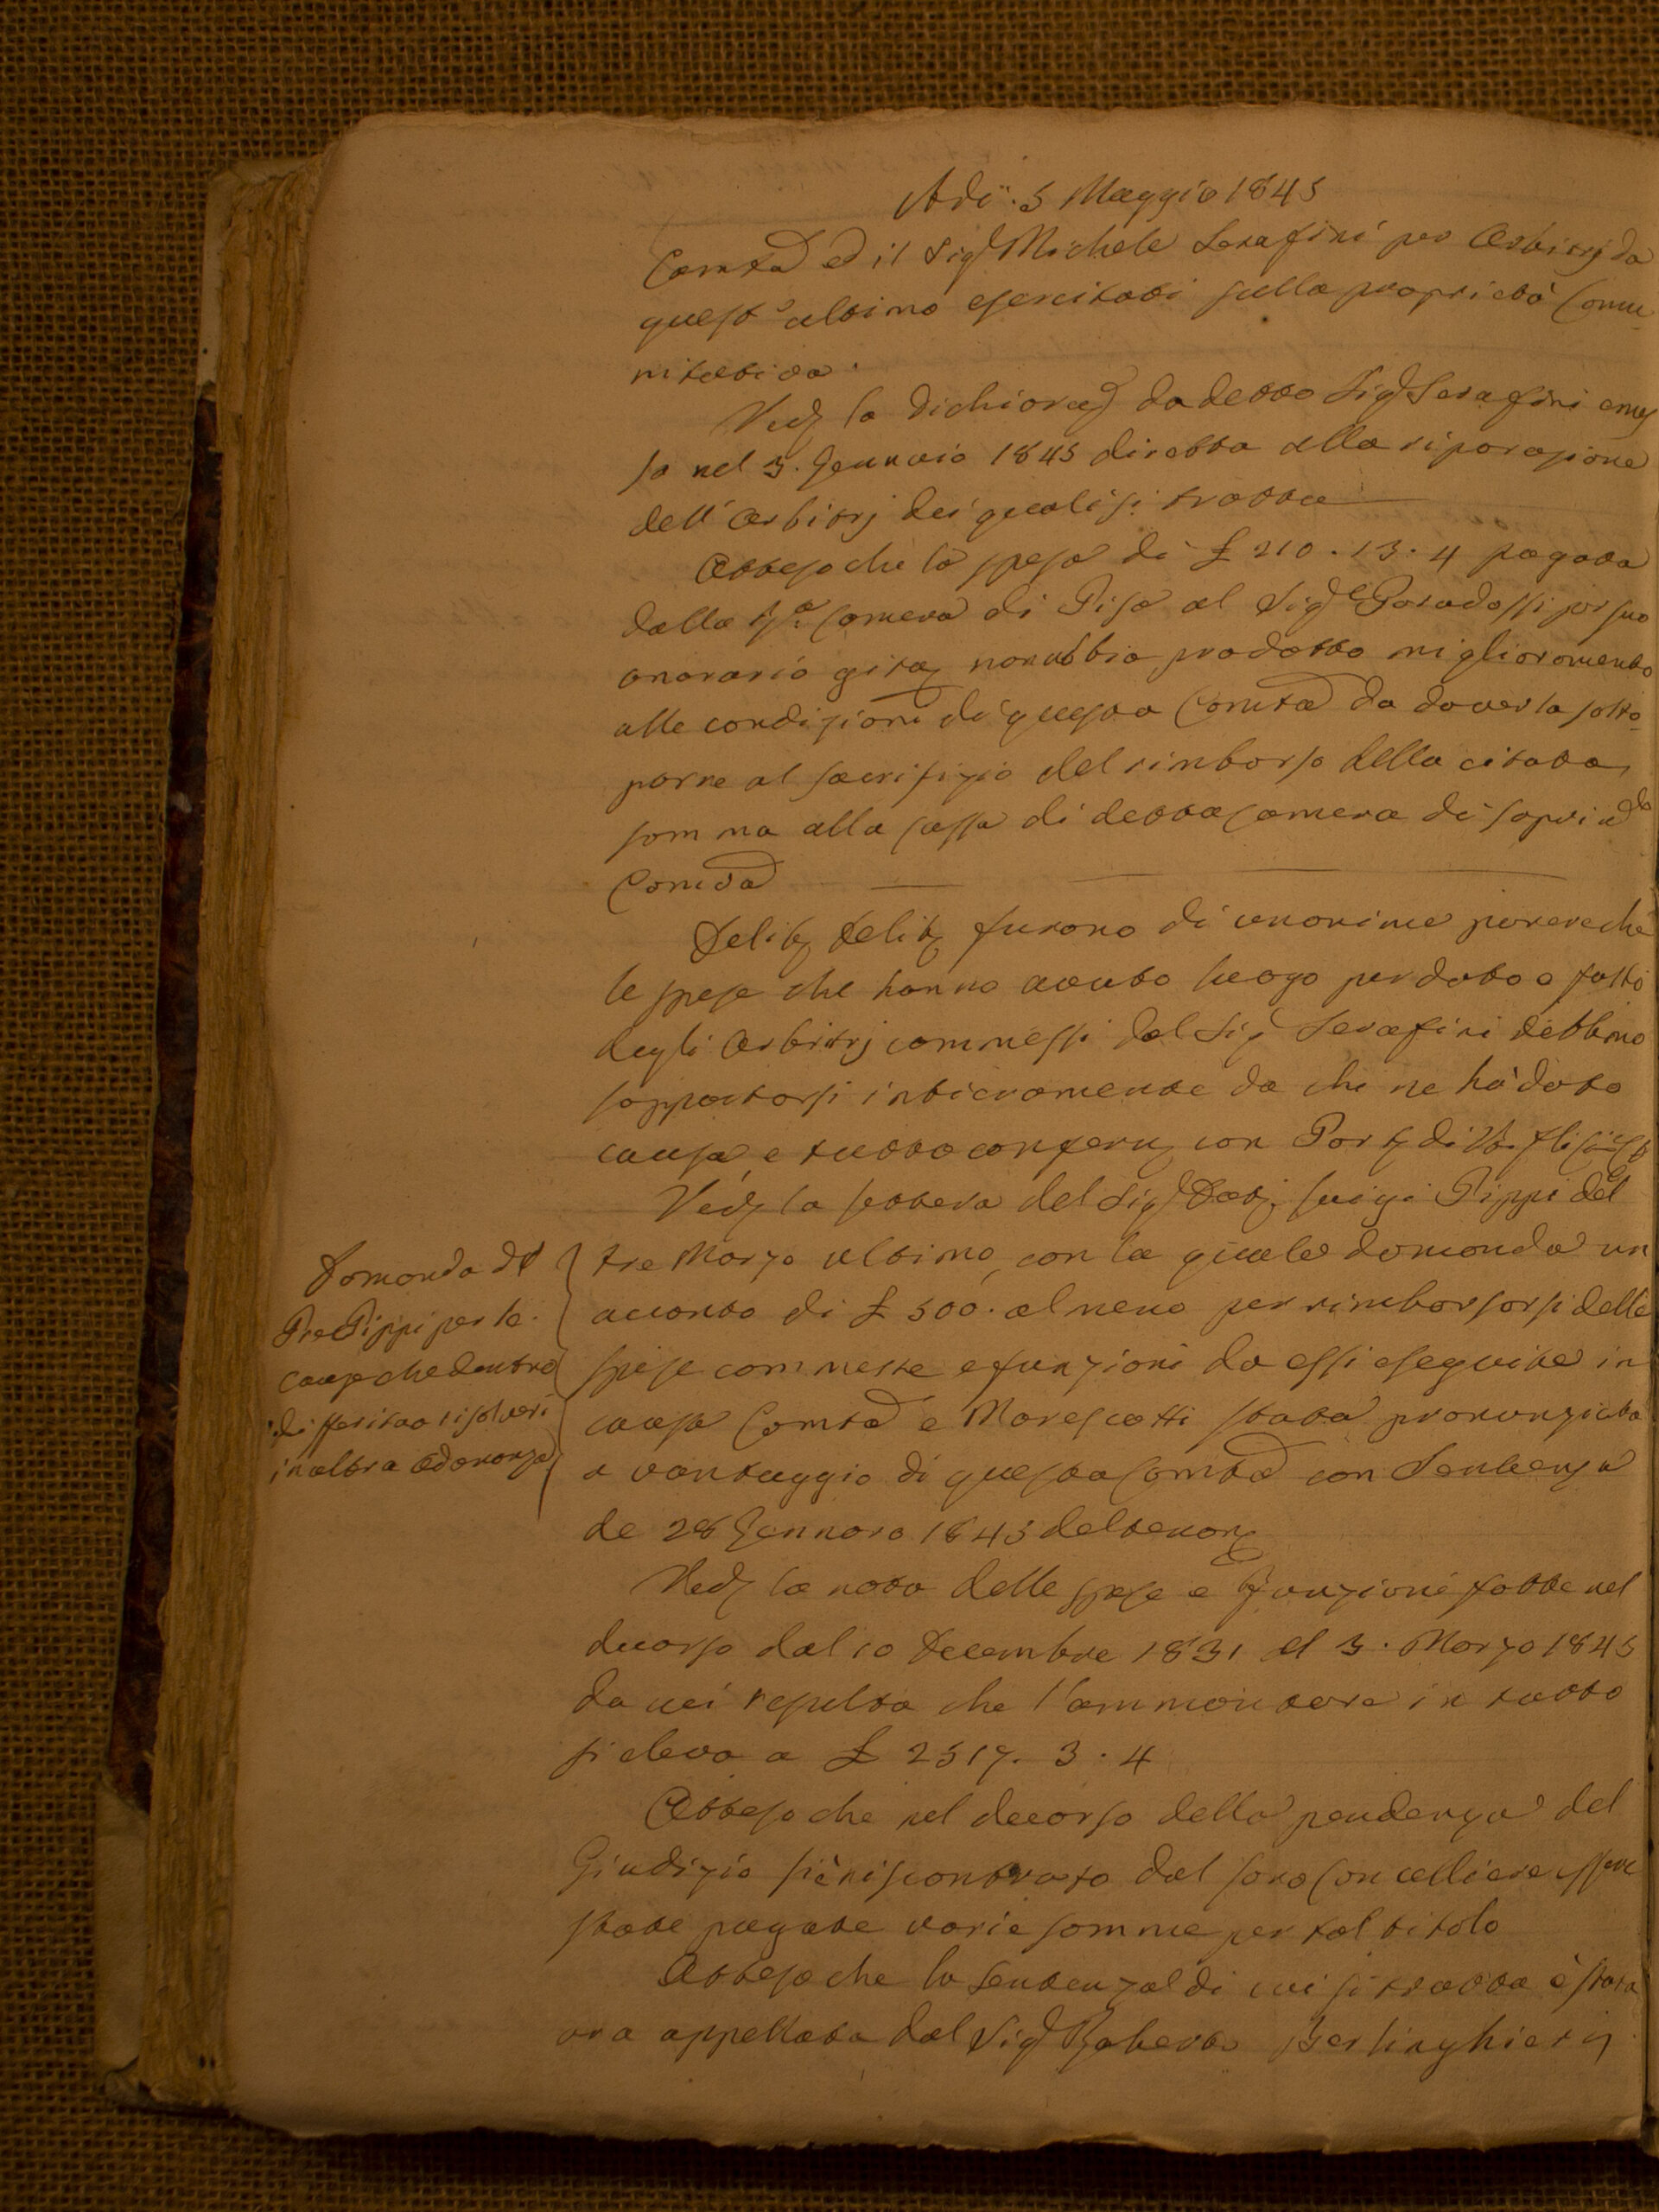 Adi: 5 Maggio 1845
Comtà ed il Sig Michele Serafini per Arbitrj da
quest'ultimo esercitati sulla proprietà Comu
nitativa.
Ved la dichiaraz da detto Sig Serafini emes
sa nel 3. Gennaio 1845 diretta alla riparazione
dell' Arbitrj dei quali si tratta
Atteso che la spesa di £ 210.13.4 pagata
dalla Camera di Pisa al Sig Paradossi per suo
onorario gita non abbia prodotto miglioramento
alle condizioni di questa Comtà da doverla sotto
porre al sacrifizio del rimborso della citata
somma alla Cassa di detta Camera di
Comtà
Delib Delib furono di unanime parere che
le spese che hanno avuto luogo per dato e fatto
degli Arbitrj commessi dal Sig Serafini debbino
sopportarsi intieramente da chi ne hà dato
causa, e tutto con Part di V.
Ved la lettera del Sig Luigi Pippi del
tre Marzo ultimo, con la quale domanda un
acconto di £ 500. almeno per rimborsarsi delle
spese commesse e funzioni da essi eseguite in
causa Comtà e Marescotti stata pronunziata
a vantaggio di questa Comtà con Sentenza
de 28 Gennaro 1845 del tenor
Domanda del
Pre Pippi per le
cause che dentro
differitao risolversi
in altra Adunanza
Ved la nota delle spese e funzioni fatte nel
decorso dal 10 Decembre 1831 al 3. Marzo 1845
da cui resulta che l'ammontare in tutto
si eleva a £ 2517. 3. 4
Atteso che nel decorso della pendenza del
Giudizio si è riscontrato dal loro Cancelliere essere
state pagate varie somme per tal titolo
Atteso che la Sentenza di cui si tratta è stata
ora appellata dal Sig Berlinghieri